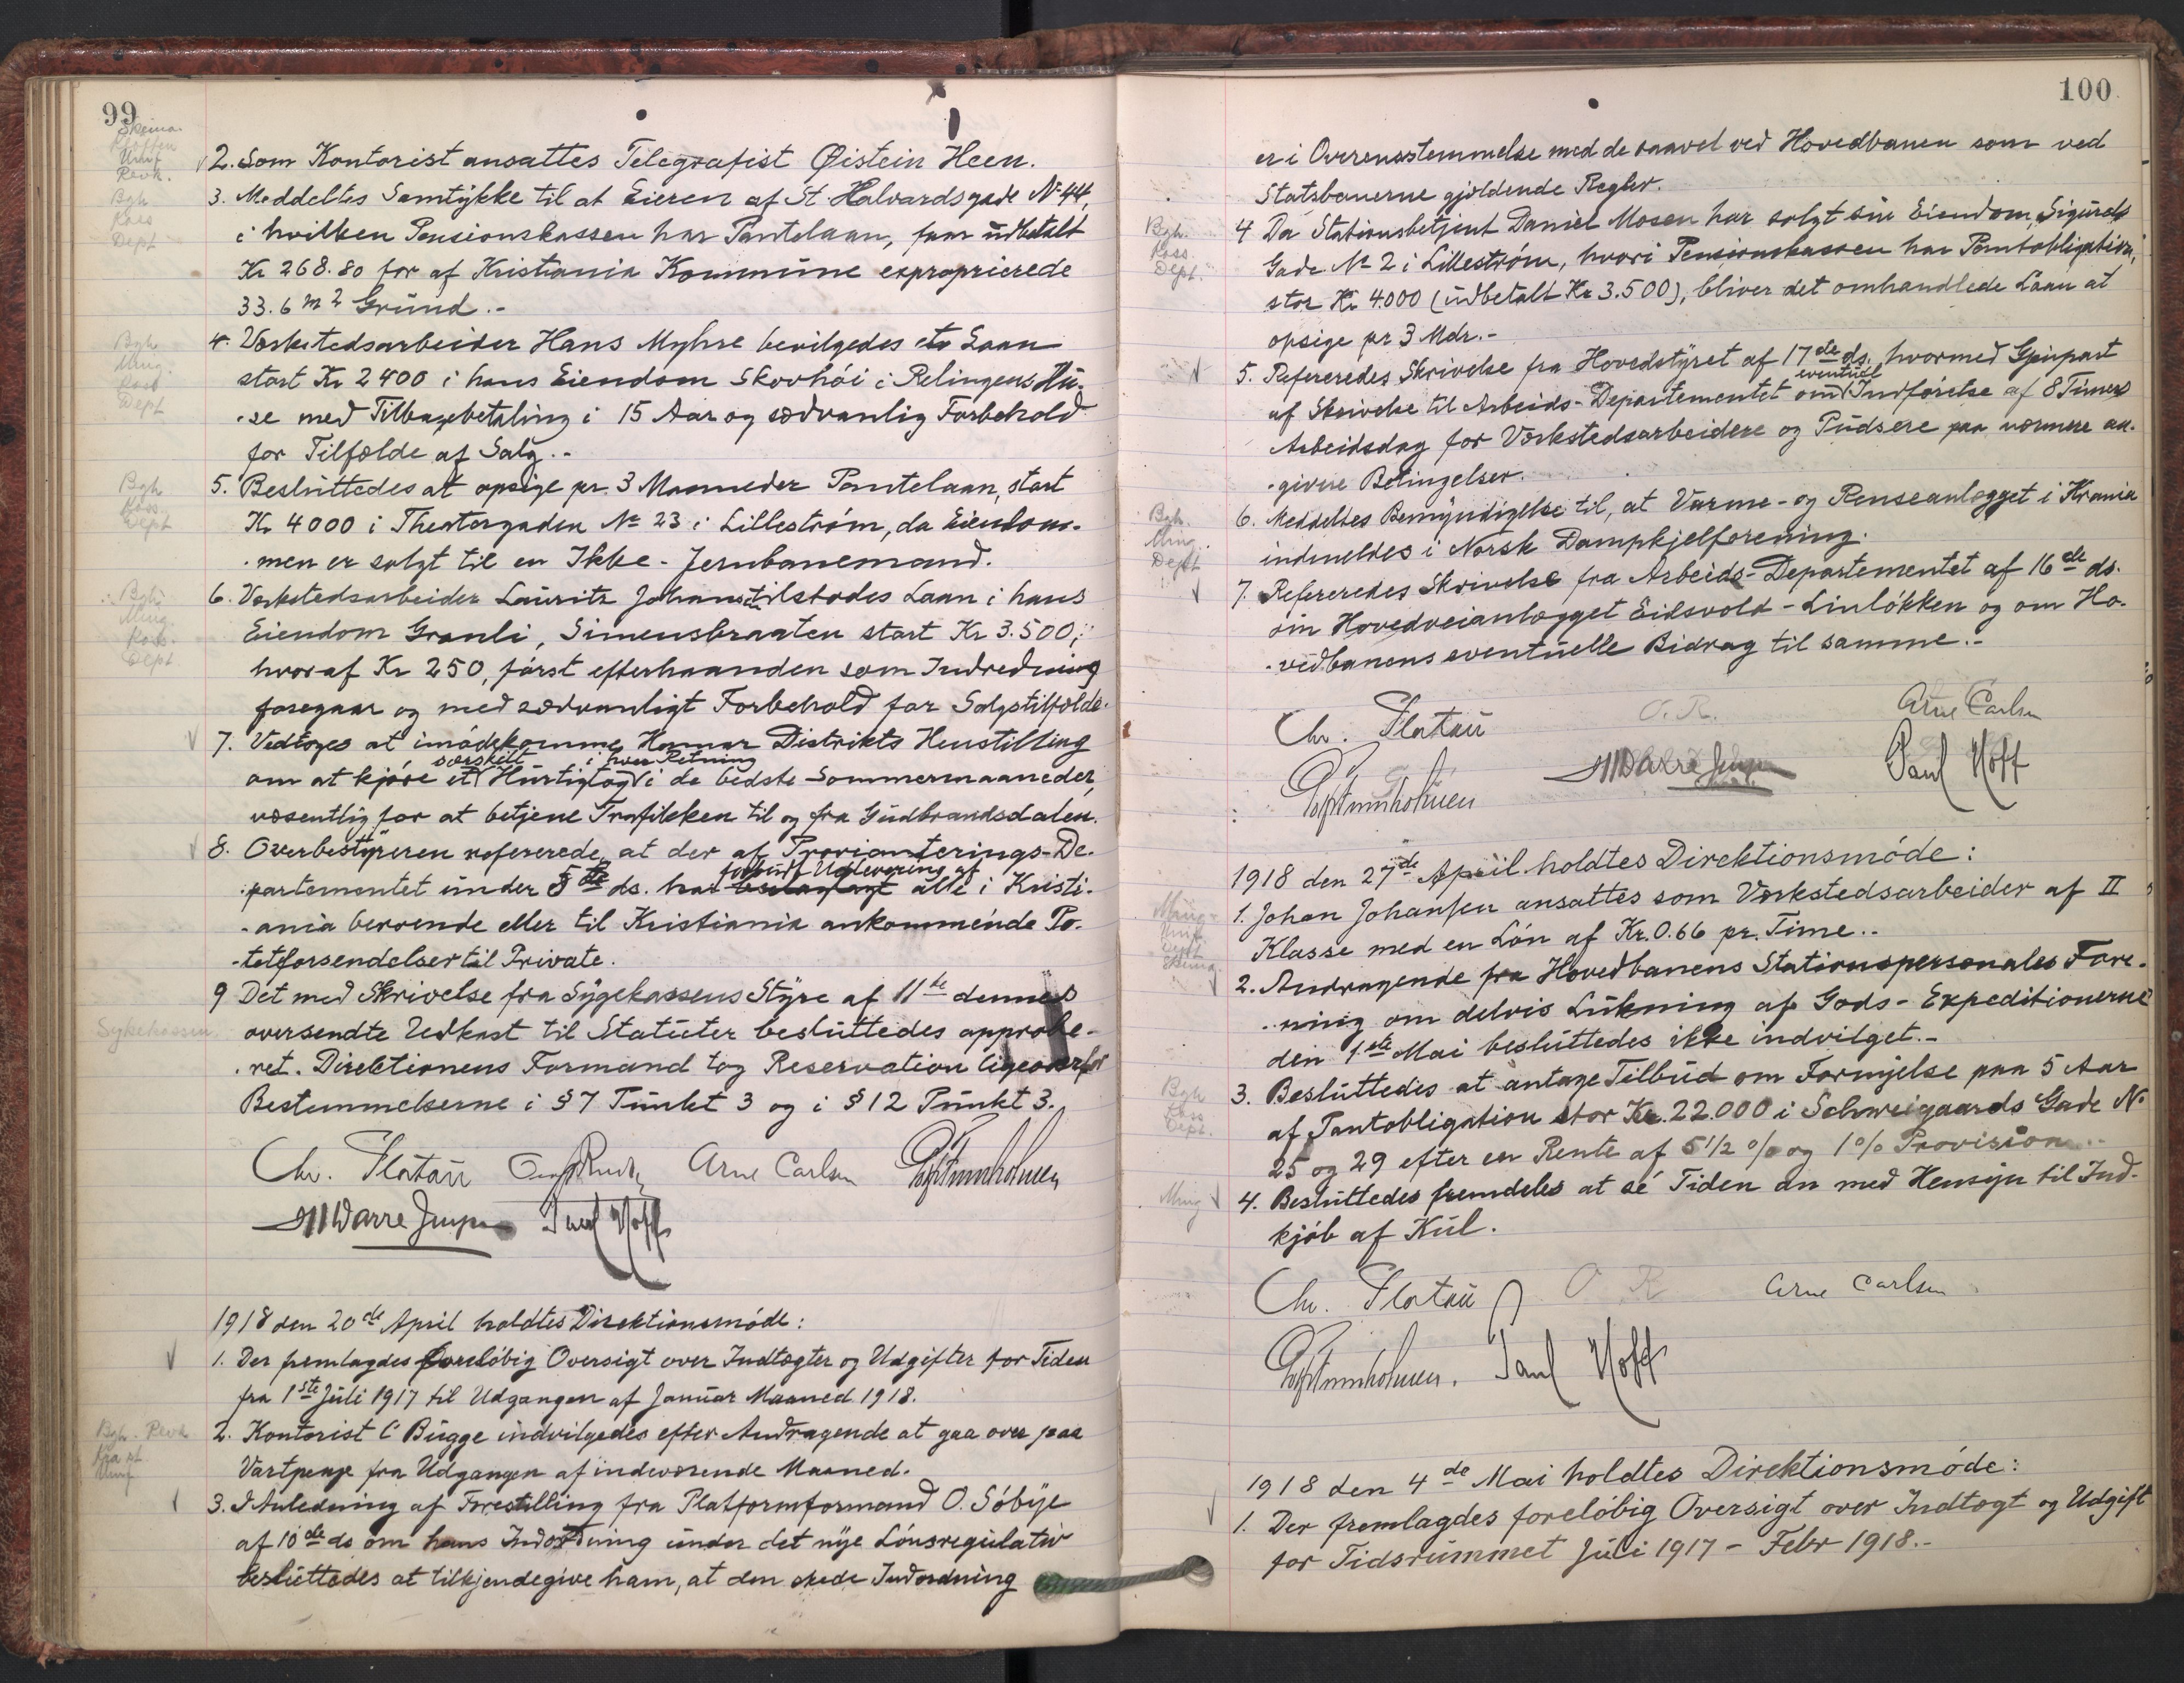 99
2. Som Kontorist ansattes Telegrafist Øistein Heen.
3. Meddeltes Samtykke til at Eieren af St. Halvardsgade № 44,
i hvilken Pensionskassen har Pantelaan, faar udbetalt
Kr 268.80 for af Kristiania Kommune exproprierede
33.6 m2 Grund.-
4. Værkstedsarbeider Hans Myhre bevilgedes et Laan
stort Kr 2400 i hans Eiendom Skovhöi i Relingens Hu-
-se med Tilbagebetaling i 15 Aar og sædvanlig Forbehold
for Tilfælde af Salg.-
5. Besluttedes at opsige pr. 3 Maaneder Pantelaan, stort
Kr 4000 i Theatergaden № 23 i Lilleström, da Eiendom-
-men er solgt til en Ikke-Jernbanemand.
6. Værkstedsarbeider Lauritz Johansen tilstodes Laan i hans
Eiendom Granli, Simensbraaten stort Kr 3.500,
hvoraf Kr 250, först efterhaanden som Indredning
foregaar og med sædvanligt Forbehold for Salgstilfælde.
7. Vedtoges at imödekomme Hamar Distrikts Henstilling
særskilt i hver Retning
om at kjöre et Hurtigtog i de bedste Sommermaaneder,
væsentlig for at betjene Trafikken til og fra Gudbrandsdalen.
8. Overbestyreren refererede, at der af Provianterings-De-
forbudt Udlevering af
-partementet under 5te ds. har beslaglagt alle i Kristi-
-ania beroende eller til Kristiania ankommende Po-
-tetforsendelser til Private.
Sykekassen
9 Det med Skrivelse fra Sygekassens Styre af 11te dennes
oversendte Udkast til Statuter besluttedes approbe-
-ret. Direktionens Formand tog Reservation ligeoverfor
Bestemmelserne i § 7 Punkt 3 og i § 12 Punkt 3.
Chr. Platou Arne Carlsen
Paul Hoff
1918 den 20de April holdtes Direktionsmöde:
1. Der fremlagdes foreløbig Oversigt over Indtægter og Udgifter for Tiden
fra 1ste Juli 1917 til Udgangen af Januar Maaned 1918.
2. Kontorist C Bugge indvilgedes efter Andragende at gaa over paa
Vartpenge fra Udgangen af indeværende Maaned.
3. I Anledning af Forestilling fra Platformformand O. Söbye
af 10de ds om hans Indordning under det nye Lönsregulativ
besluttedes at tilkjendegive ham, at den skede Indordning
100
er i Overensstemmelse med de saavel ved Hovedbanen som ved
Statsbanerne gjældende Regler.
Bgh.
Kass.
Dept.
4 Da Stationsbetjent Daniel Mosen har solgt sin Eiendom, Sigurds
Gade № 2 i Lilleström, hvori Pensionskassen har Pantobligation,
stor Kr 4.000 (udbetalt Kr 3.500), bliver det omhandlede Laan at
opsige pr 3 Mdr.-
5. Refereredes Skrivelse fra Hovedstyret af 17de ds. hvormed Gjenpart
eventuel
af Skrivelse til Arbeids-Departementet om Indförelse af 8 Timers
Arbeidsdag for Værkstedsarbeidere og Pudsere paa nærmere an-
-givne Betingelser.
Bgh.
Ming.
Dept
6. Meddeltes Bemyndigelse til, at Varme- og Renseanlægget i Krania
indmeldes i Norsk Dampkjelforening.
7. Refereredes Skrivelse fra Arbeids-Departementet af 16de ds.
om Hovedveianlægget Eidsvold-Linlökken og om Ho-
-vedbanens eventuelle Bidrag til samme.-
Chr. Platou O. R. Arne Carlsen
Paul Hoff
1918 den 27de April holdtes Direktionsmöde:
1. Johan Johansen ansattes som Værkstedsarbeider af II
Klasse med en Lön af Kr. 0.66 pr. Time..
2. Andragende fra Hovedbanens Stationspersonales Fore-
-ning om delvis Lukning af Gods-Expeditionerne
den 1ste Mai besluttedes ikke indvilget.-
3. Besluttedes at antage Tilbud om Fornyelse paa 5 Aar
af Pantobligation stor Kr. 22.000 i Schweigaards Gade №
25 og 29 efter en Rente af 5 1/2 % og 1 % Provision..
Ming
4. Besluttedes fremdeles at sé Tiden an med Hensyn til Ind-
kjöb af Kul.
Chr. Platou O R Arne Carlsen
Paul Hoff
1918 den 4de Mai holdtes Direktionsmöde:
1. Der fremlagdes foreløbig Oversigt over Indtægt og Udgift
for Tidsrummet Juli 1917 - Febr 1918.-